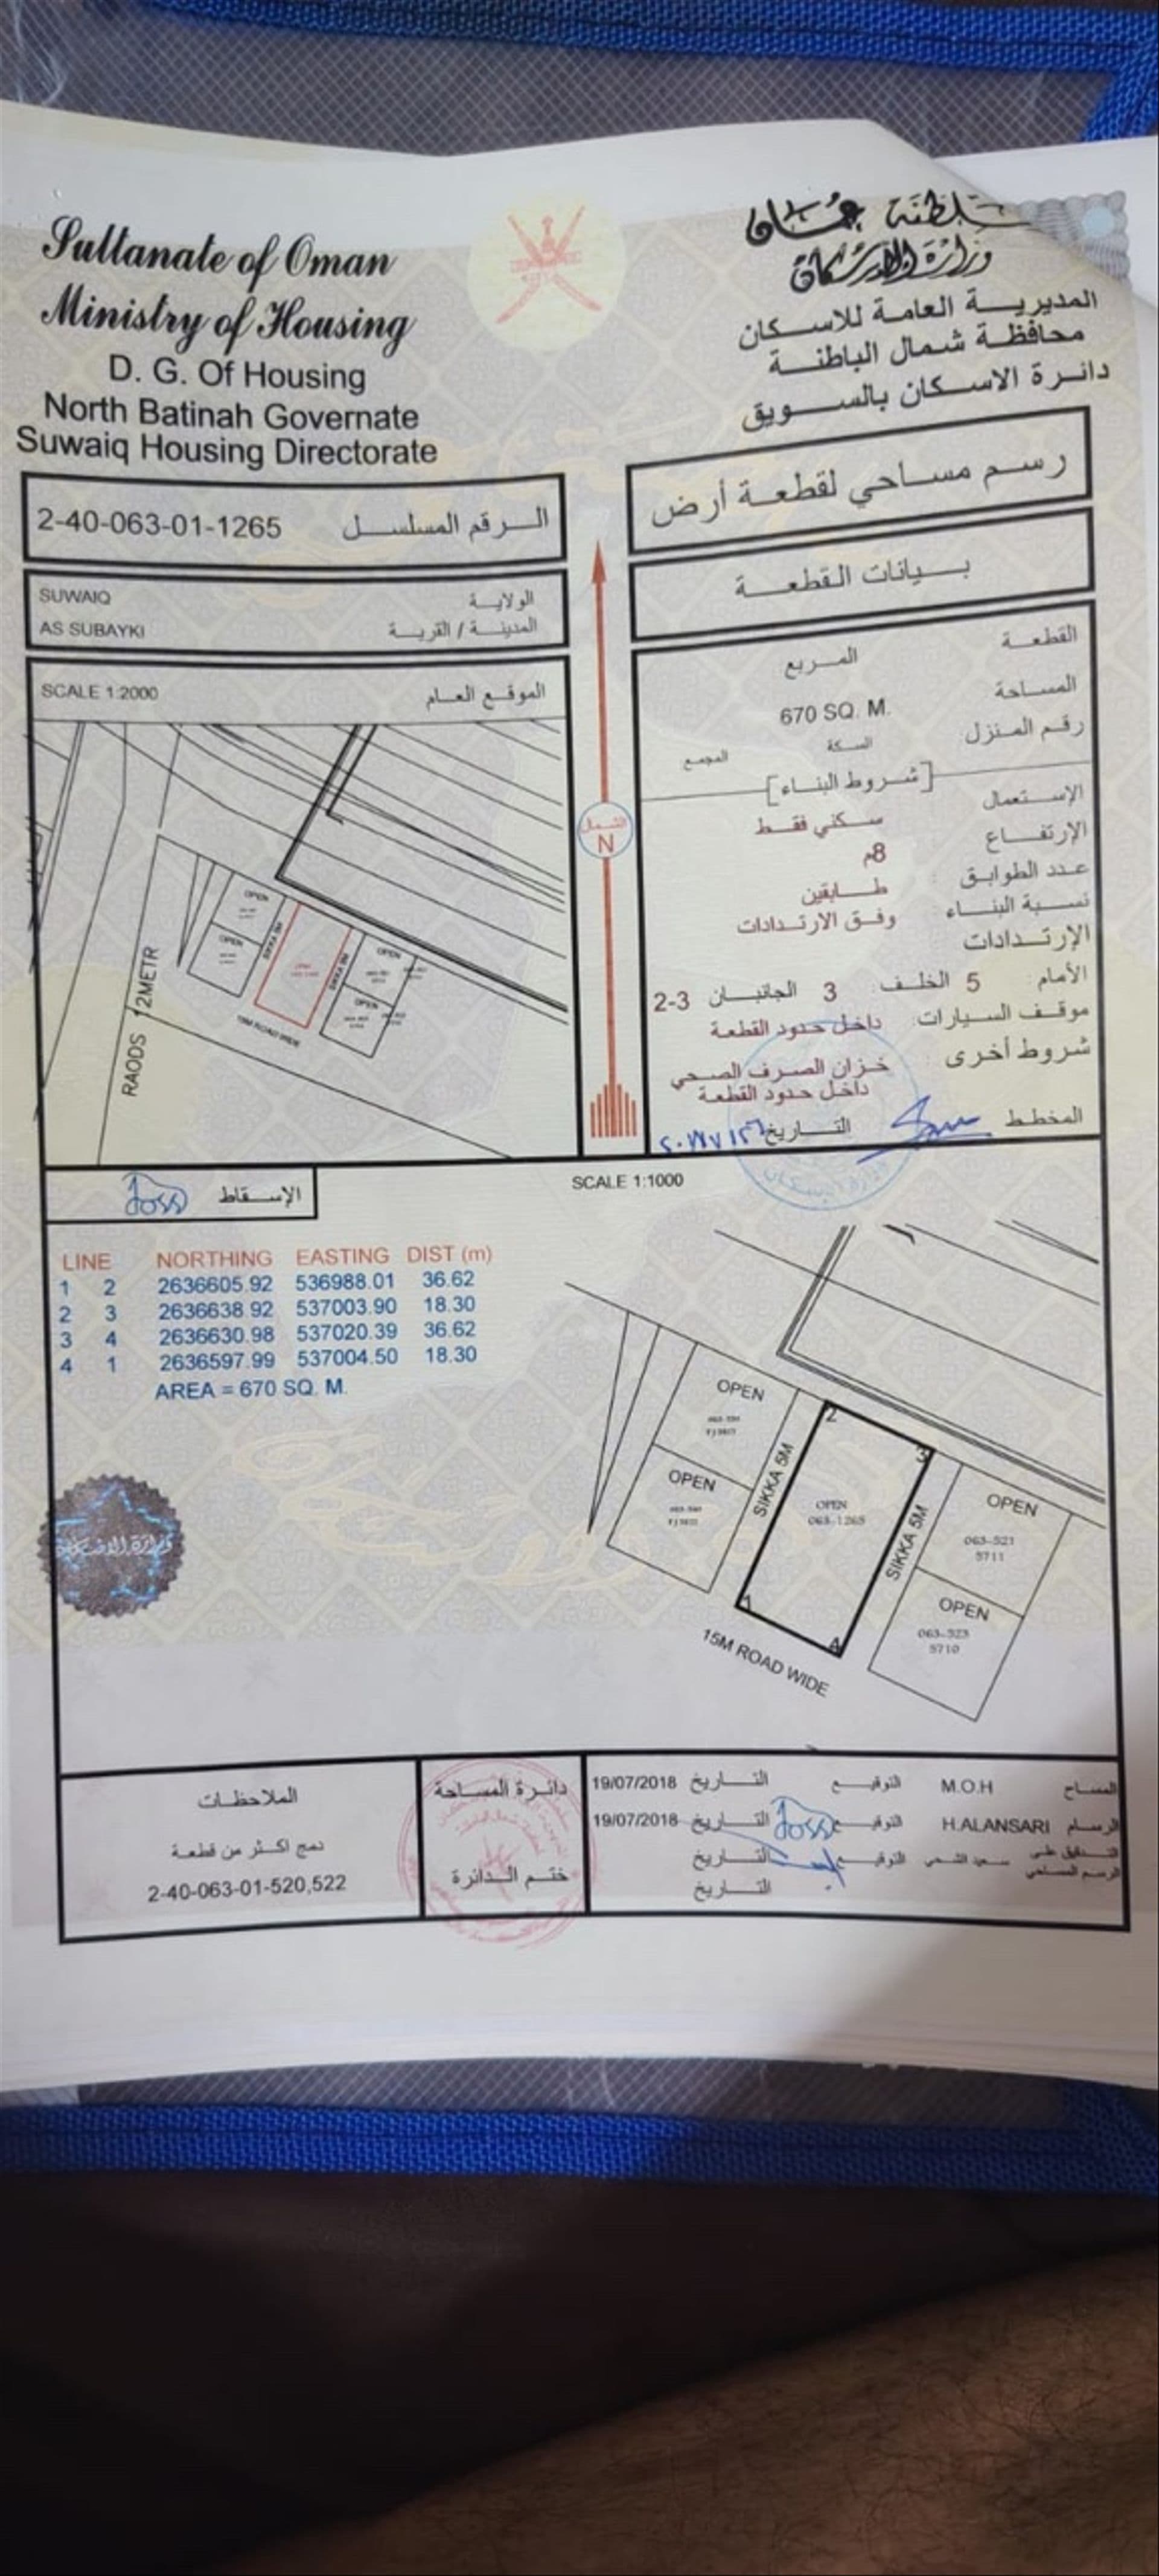 Sultanate of Oman
Ministry of Housing
D. G. Of Housing
North Batinah Governate
Suwaiq Housing Directorate
سلطنة عمان
وزارة الإسكان
المديرية العامة للاسكان
محافظة شمال الباطنة
دائرة الاسكان بالسويق
2-40-063-01-1265 الرقم المسلسل
SUWAIQ الولاية
AS SUBAYKI المدينة / القرية
SCALE 1:2000 الموقع العام
OPEN
OPEN
OPEN
OPEN
15M ROAD WIDE
RAODS 12METR
الشمال
N
رسم مساحي لقطعة أرض
بيانات القطعة
القطعة المربع
المساحة 670 SQ. M.
رقم المنزل السكة المجمع
[شروط البناء]
الإستعمال سكني فقط
الإرتفاع 8م
عدد الطوابق : طابقين
نسبة البناء : وفق الارتدادات
الإرتدادات
الأمام : 5 الخلف : 3 الجانبان 2-3
موقف السيارات: داخل حدود القطعة
شروط أخرى : خزان الصرف الصحي
داخل حدود القطعة
المخطط التاريخ
الإسقاط
SCALE 1:1000
LINE NORTHING EASTING DIST (m)
1 2 2636605.92 536988.01 36.62
2 3 2636638.92 537003.90 18.30
3 4 2636630.98 537020.39 36.62
4 1 2636597.99 537004.50 18.30
AREA = 670 SQ. M.
OPEN
OPEN
SIKKA 5M
2
3
OPEN
063-1265
SIKKA 5M
1
4
OPEN
063-521
5711
OPEN
063-523
5710
15M ROAD WIDE
وزارة الاسكان
الملاحظات
دمج اكثر من قطعة
2-40-063-01-520,522
دائرة المساحة
ختم الدائرة
المساح M.O.H التوقيع التاريخ 19/07/2018
الرسام H.ALANSARI التوقيع التاريخ 19/07/2018
التدقيق على
الرسم المساحي
التوقيع التاريخ
التاريخ